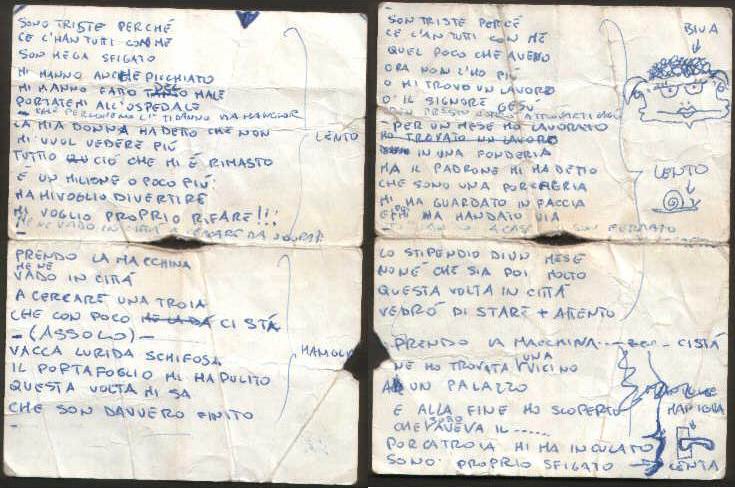 SONO TRISTE PERCHÉ
CE L'HAN TUTTI CON ME
SON MEGA SFIGATO
MI HANNO ANCHE PICCHIATO
MI HANNO FATO TANTO DEL MALE
PORTATEMI ALL'OSPEDALE
- CHE PERLOMENO LI TI DANNO DA MANGIAR
LA MIA DONNA HA DETO CHE NON
MI VUOL VEDERE PIÙ
TUTTO QU CIÓ CHE MI É RIMASTO
É UN MILIONE O POCO PIÙ
HAMIVOGLIO DIVERTIRE
MI VOGLIO PROPRIO RIFARE!!!
ME NE VADO IN CITTÀ A
LENTO
PRENDO LA MACCHINA
ME NE
VADO IN CITTÁ
A CERCARE UNA TROIA
CHE CON POCO ME LA DÁ CI STÁ
- (ASSOLO) -
VACCA LURIDA SCHIFOSA
IL PORTAFOGLIO MI HA PULITO
QUESTA VOLTA MI SA
CHE SON DAVVERO FINITO
-
SONO TRISTE PERCÉ
CE L'HAN TUTTI CON ME
QUEL POCO CHE AVEVO
ORA NON L'HO PIÙ
O MI TROVO UN LAVORO
O IL SIGNORE GESÙ
- PER UN MESE HO LAVORATO
HO TROVATO UN LAVORO
IN UNA FONDERIA
MA IL PADRONE MI HA DETTO
CHE SONO UNA PORCHERIA
MI HA GUARDATO IN FACCIA
E POI MI HA MANDATO VIA
BIUA
LENTO
LO STIPENDIO DI UN MESE
NON É CHE SIA POI MOLTO
QUESTA VOLTA IN CITTÁ
VEDRÓ DI STARE + ATTENTO
PRENDO LA MACCHINA ... CISTÁ
NE HO TROVATA UNA VICINO
A UN PALAZZO
E ALLA FINE HO SCOPERTO
CHE SOTTO AVEVA IL ......
PORCATROIA MI HA INCULATO
SONO PROPRIO SFIGATO
LENTA